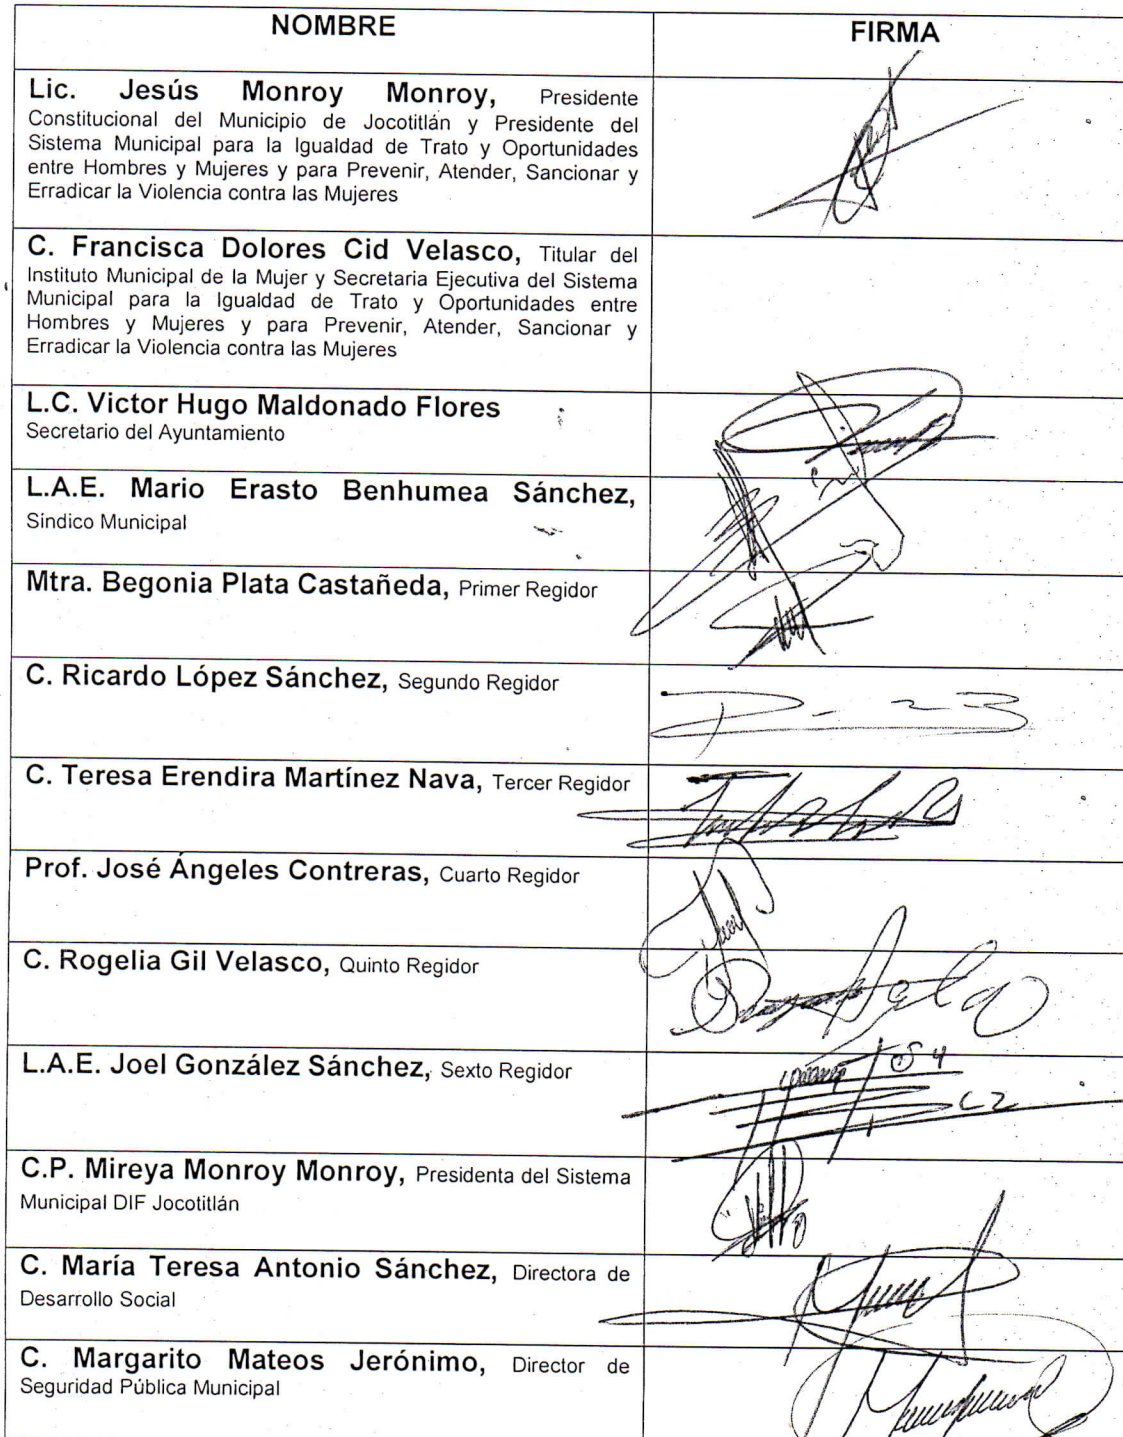 NOMBRE
FIRMA
Lic. Jesús Monroy Monroy, Presidente
Constitucional del Municipio de Jocotitlán y Presidente del
Sistema Municipal para la Igualdad de Trato y Oportunidades
entre Hombres y Mujeres y para Prevenir, Atender, Sancionar y
Erradicar la Violencia contra las Mujeres
C. Francisca Dolores Cid Velasco, Titular del
Instituto Municipal de la Mujer y Secretaria Ejecutiva del Sistema
Municipal para la Igualdad de Trato y Oportunidades entre
Hombres y Mujeres y para Prevenir, Atender, Sancionar y
Erradicar la Violencia contra las Mujeres
L.C. Victor Hugo Maldonado Flores
Secretario del Ayuntamiento
L.A.E. Mario Erasto Benhumea Sánchez,
Síndico Municipal
Mtra. Begonia Plata Castañeda, Primer Regidor
C. Ricardo López Sánchez, Segundo Regidor
C. Teresa Erendira Martínez Nava, Tercer Regidor
Prof. José Ángeles Contreras, Cuarto Regidor
C. Rogelia Gil Velasco, Quinto Regidor
L.A.E. Joel González Sánchez, Sexto Regidor
C.P. Mireya Monroy Monroy, Presidenta del Sistema
Municipal DIF Jocotitlán
C. María Teresa Antonio Sánchez, Directora de
Desarrollo Social
C. Margarito Mateos Jerónimo, Director de
Seguridad Pública Municipal